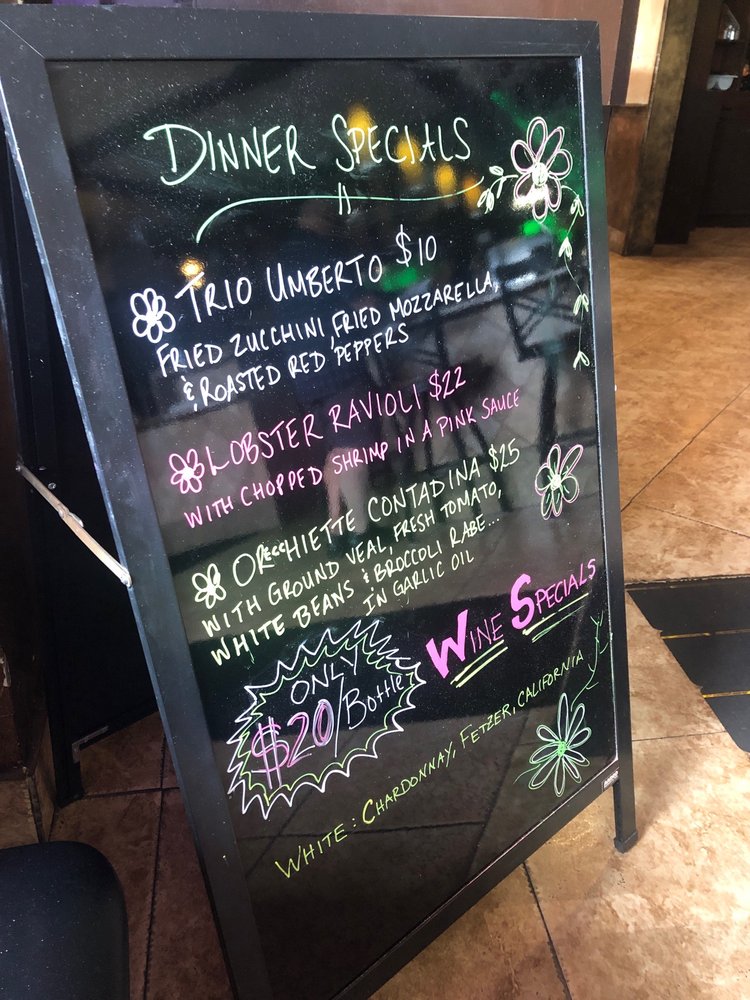 DINNER SPECIALS
TRIO UMBERTO $10
FRIED ZUCCHINI, FRIED MOZZARELLA,
& ROASTED RED PEPPERS
LOBSTER RAVIOLI $22
WITH CHOPPED SHRIMP IN A PINK SAUCE
ORECCHIETTE CONTADINA $25
WITH GROUND VEAL, FRESH TOMATO,
WHITE BEANS & BROCCOLI RABE...
IN GARLIC OIL
WINE SPECIALS
ONLY
$20/Bottle
WHITE: CHARDONNAY, FETZER, CALIFORNIA